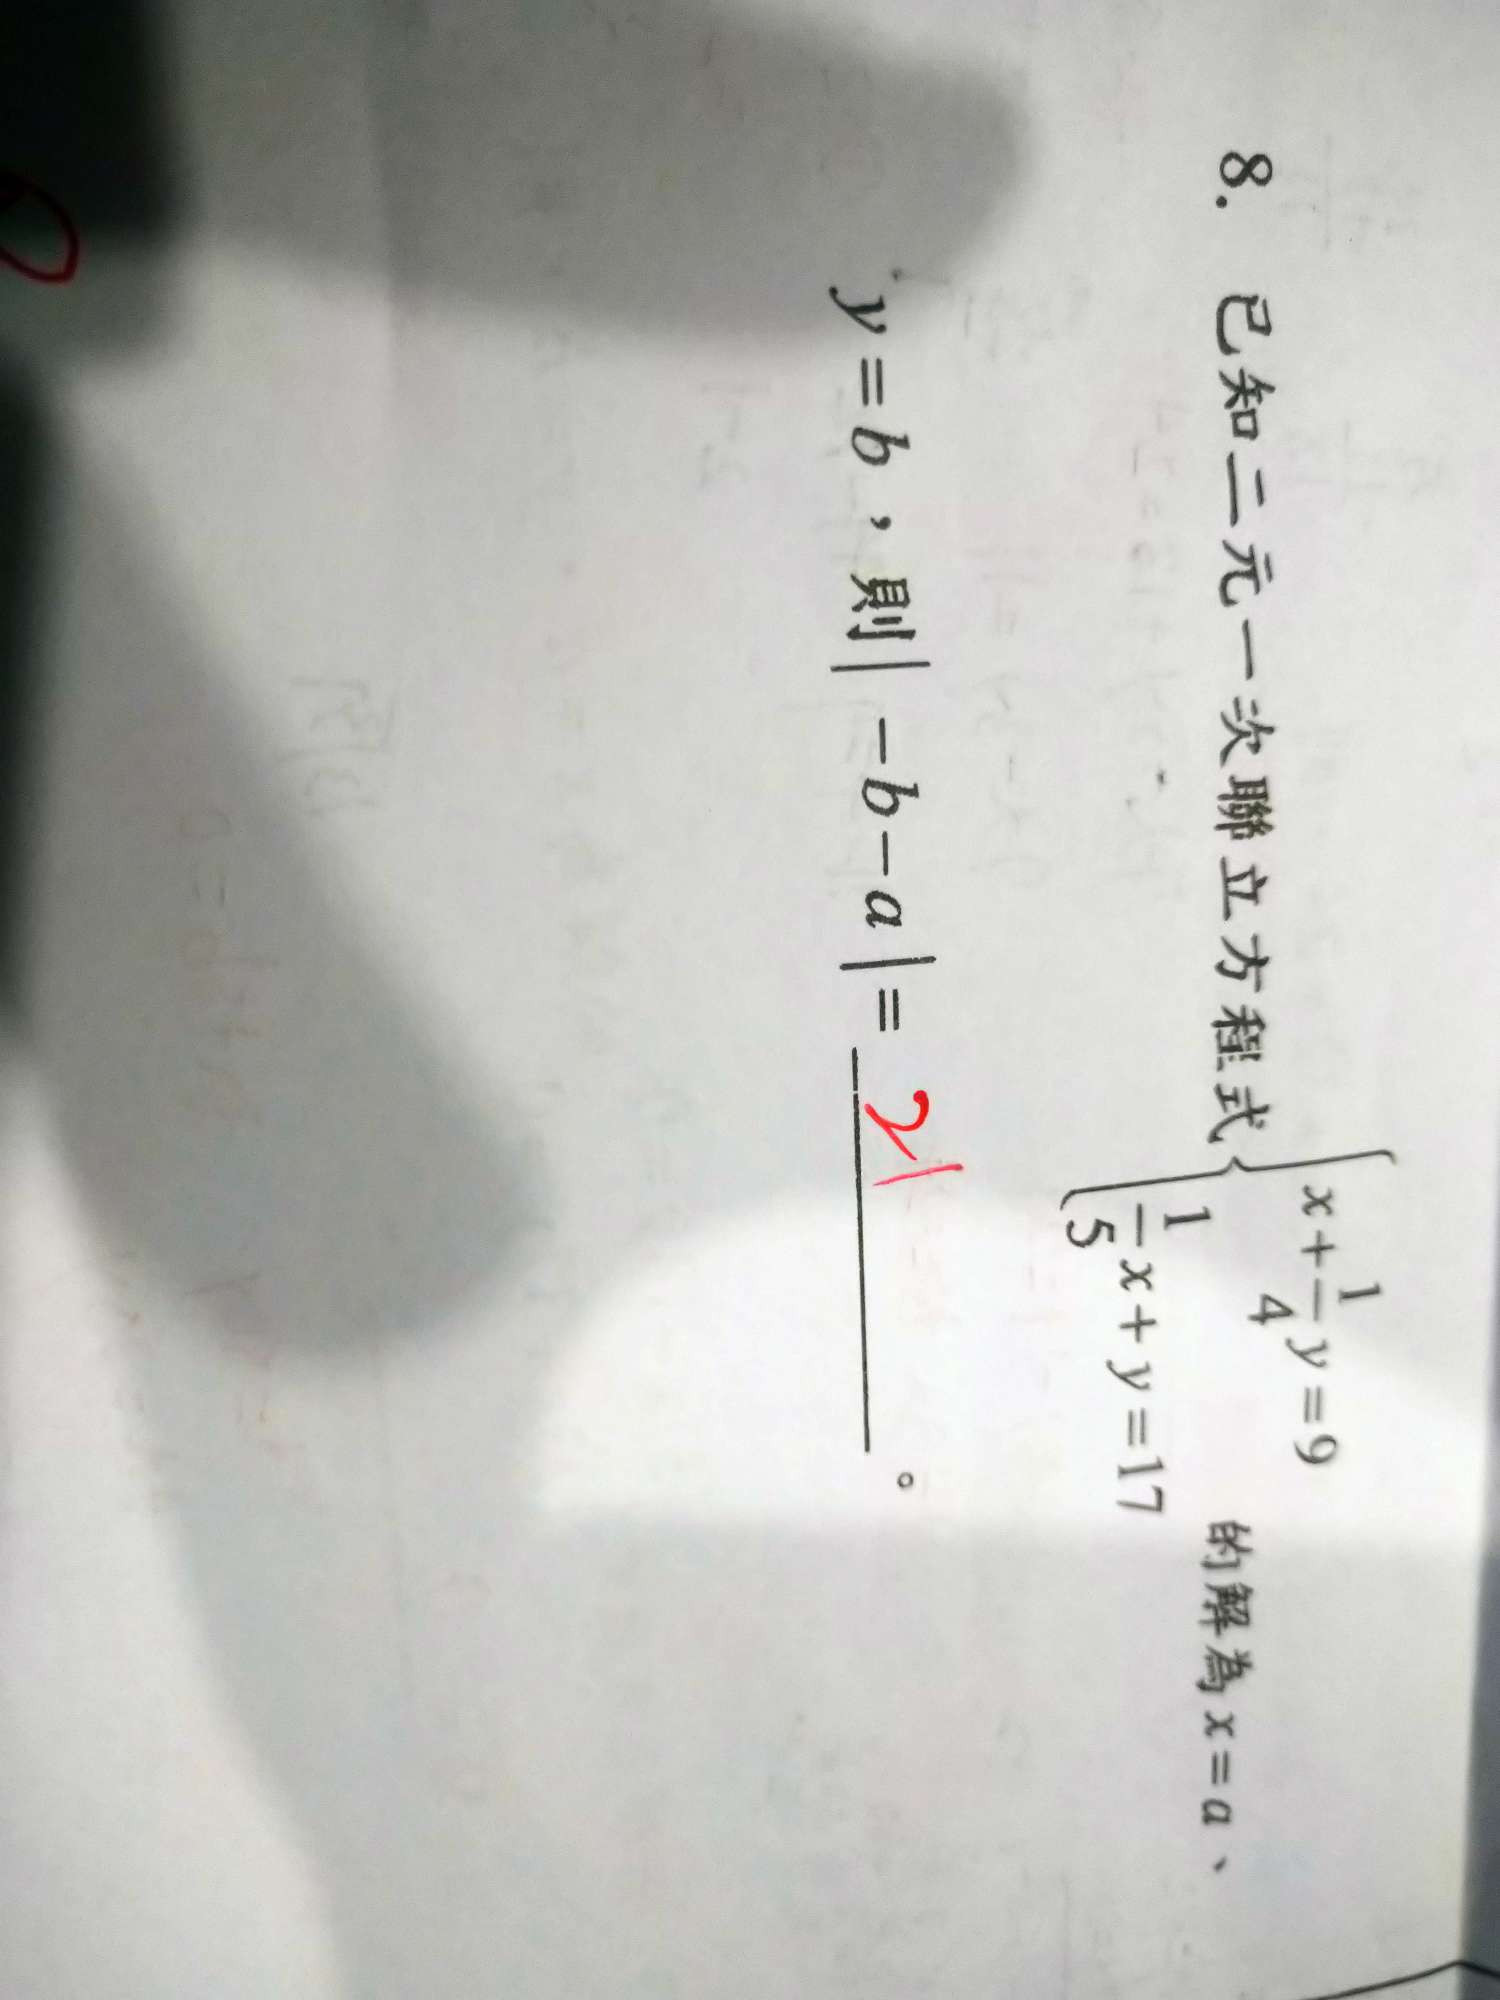 8. 已知二元一次聯立方程式{x+1/4y=9
1/5x+y=17 的解為x=a、
y=b，則|-b-a|=21。